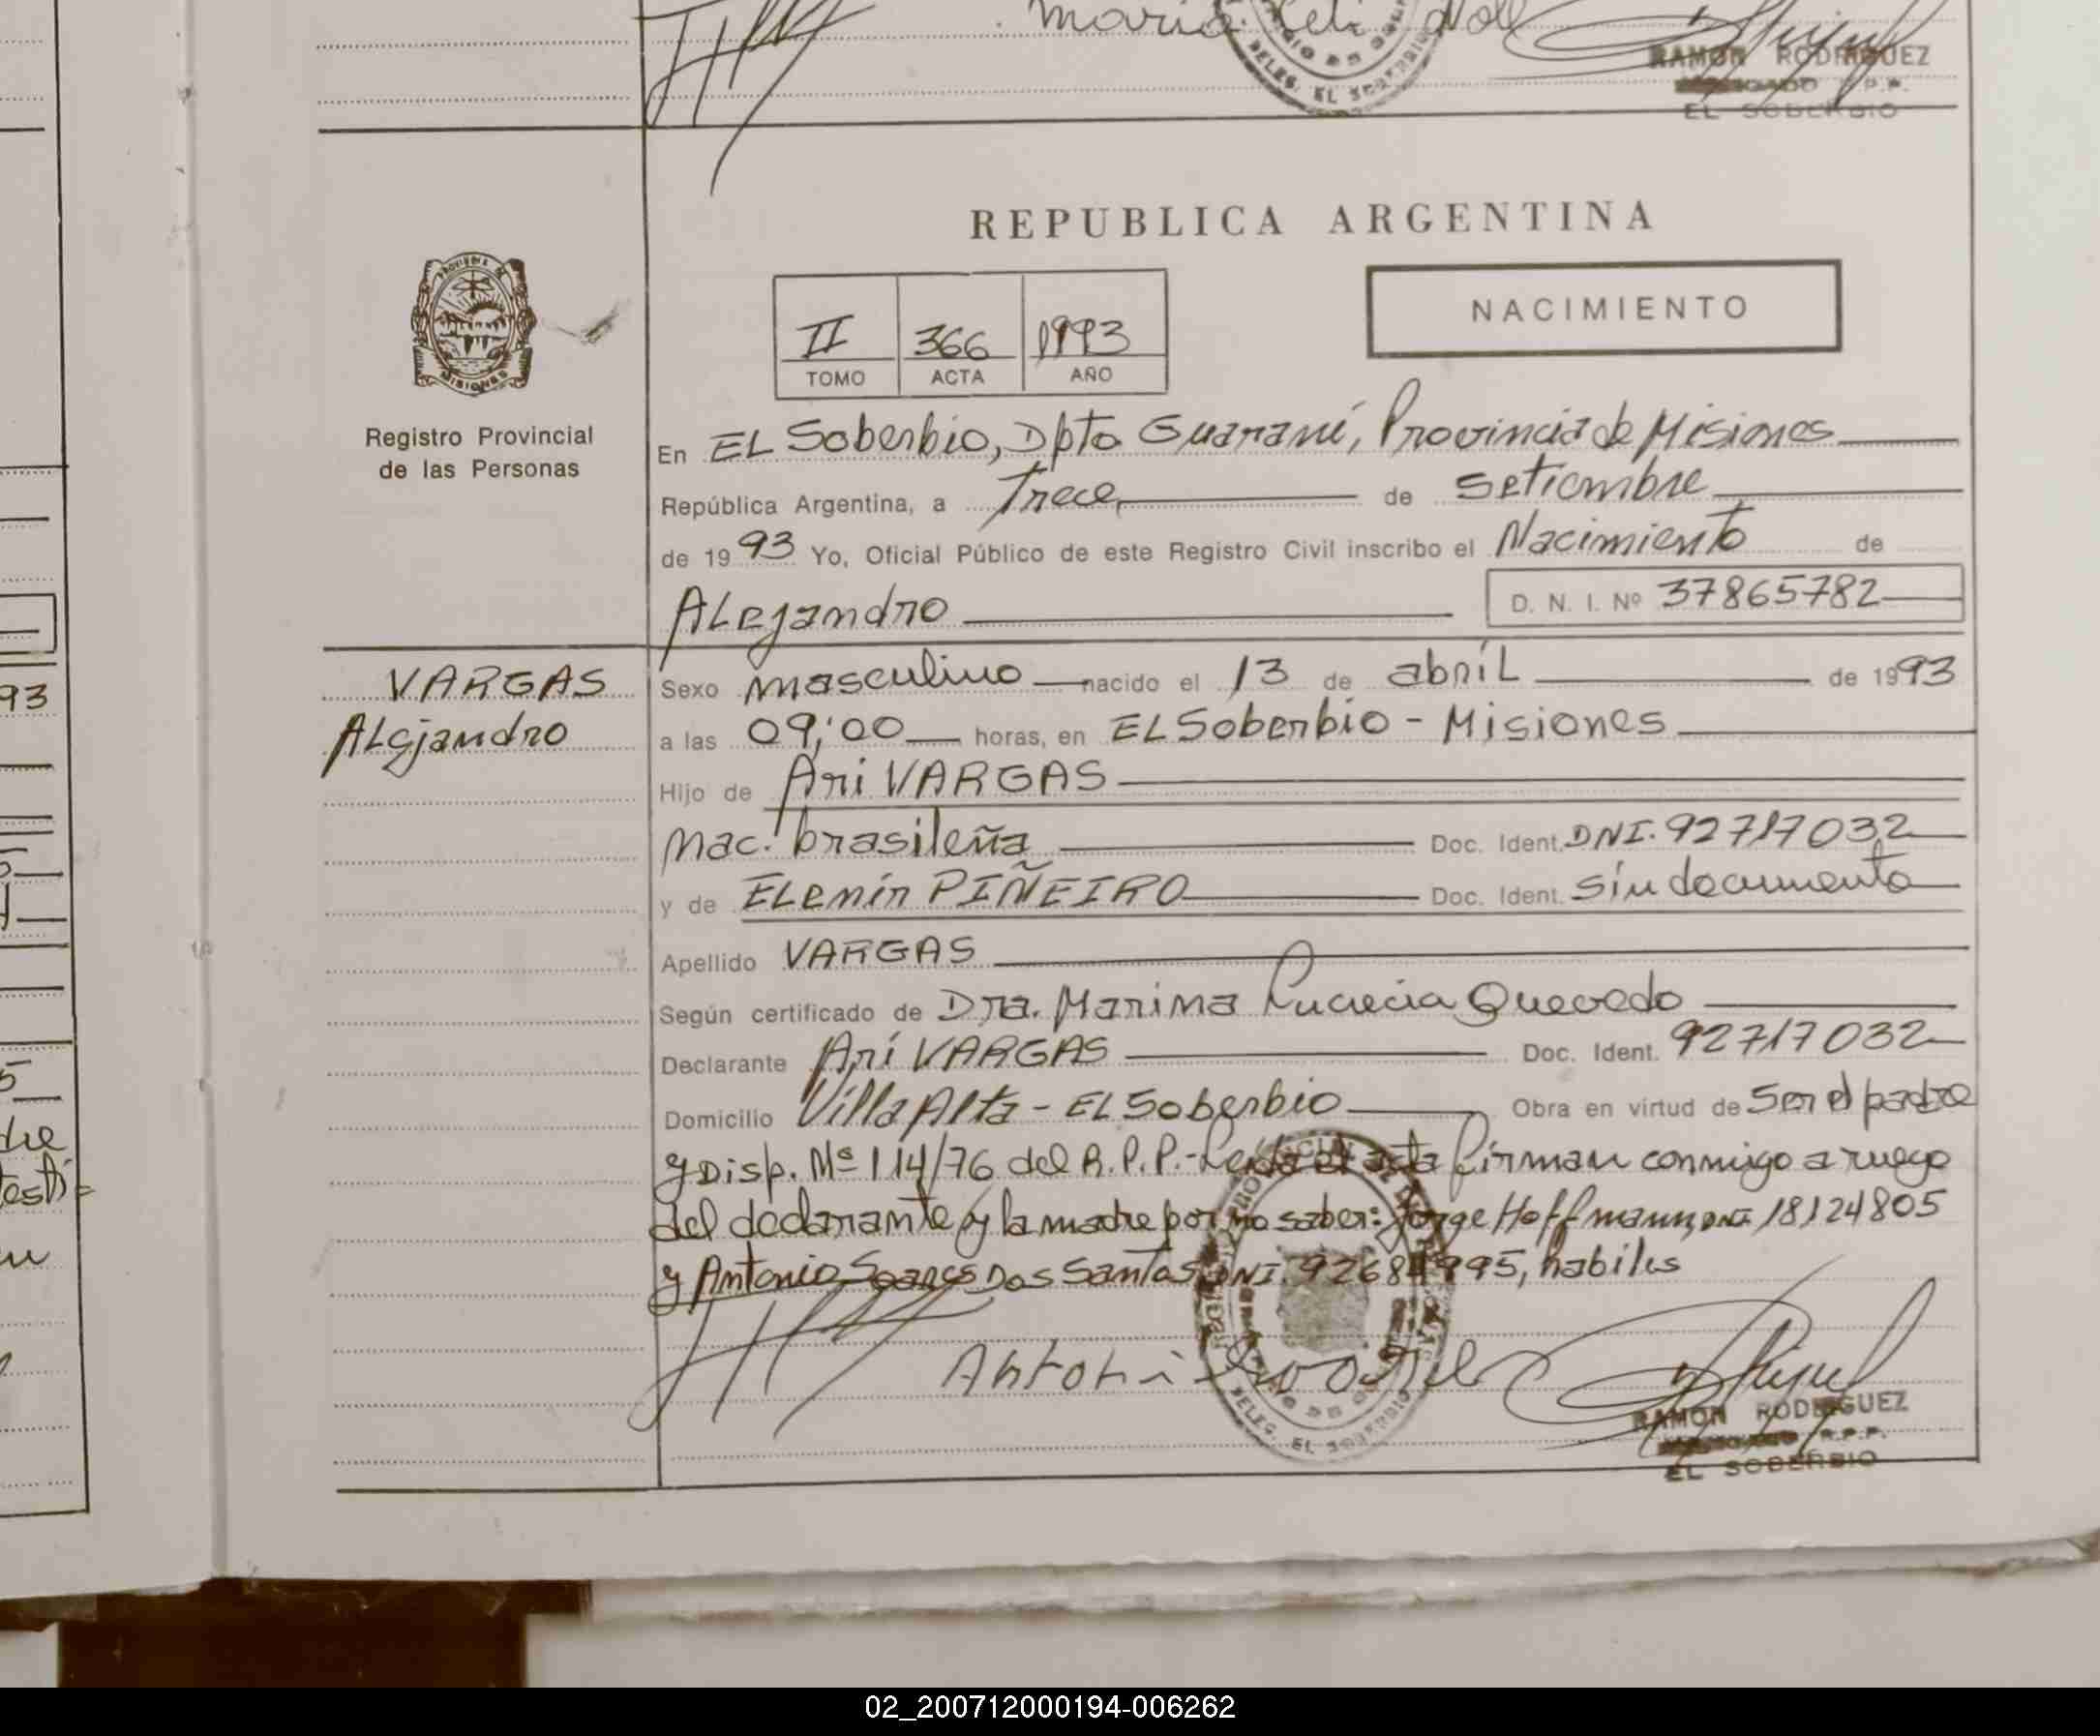 Maria
RAMON RODRIGUEZ
R.P.P.
DELEG. EL SOBERBIO
EL SOBERBIO
REPUBLICA ARGENTINA
PROVINCIA DE
MISIONES
NACIMIENTO
II 366 1993
TOMO ACTA AÑO
Registro Provincial
de las Personas
En EL Soberbio, Dpto Guaraní, Provincia de Misiones
República Argentina, a Trece de Setiembre
de 1993 Yo, Oficial Público de este Registro Civil inscribo el Nacimiento de
ALejandro D. N. I. Nº 37865782
VARGAS
ALejandro
Sexo masculino nacido el 13 de abril de 1993
a las 09,00 horas, en EL Soberbio - Misiones
Hijo de Ari VARGAS
Nac. brasileña Doc. Ident. DNI. 92717032
y de ELemir PIÑEIRO Doc. Ident. Sin documento
Apellido VARGAS
Según certificado de Dra. Marina Lucrecia Quevedo
Declarante Arí VARGAS Doc. Ident. 92717032
Domicilio Villa Alta - EL Soberbio Obra en virtud de Ser el padre
y Disp. Nº 114/76 del R.P.P.- Leida el acta firman conmigo a ruego
del declarante y la madre por no saber: Jorge Hoffmann, DNI. 18124805
y Antonio Soares Dos Santos, DNI. 995, habiles
Antoni
DELEG. EL SOBERBIO
RAMON RODRIGUEZ
R.P.P.
EL SOBERBIO
93
5
02_200712000194-006262